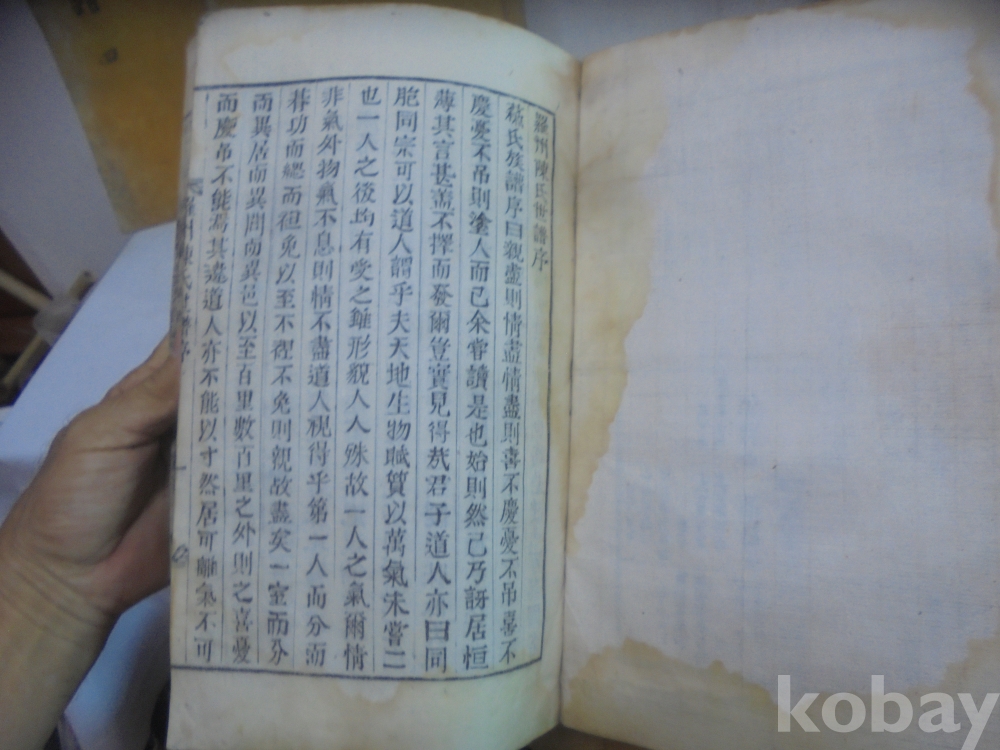 羅州陳氏世譜序
蘇氏族譜序曰親盡則情盡情盡則喜不慶憂不吊喜不
慶憂不吊則塗人而已余嘗讀是也始則然已乃訝居恒
薄其言甚盖不擇而發爾豈實見得㢤君子道人亦曰同
胞同宗可以道人謂乎夫天地生物賦質以萬氣未嘗二
也一人之後均有受之雖形貌人人殊故一人之氣爾情
非氣外物氣不息則情不盡道人視得乎第一人而分而
朞功而緦而袒免以至不袒不免則親故盡矣一室而分
而異居而異閭而異邑以至百里數百里之外則之喜憂
而慶吊不能焉其違道人亦不能以寸然居可離氣不可
羅州陳氏世譜序
kobay